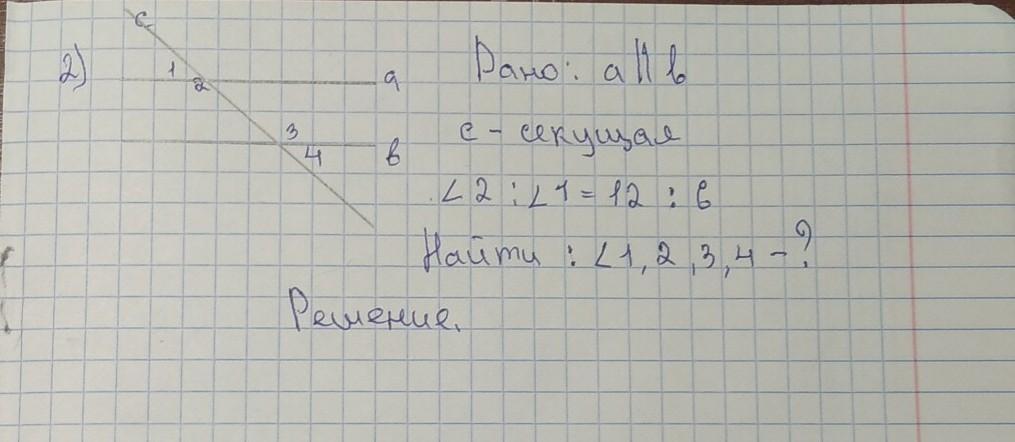 c
2) 1 2 a
3 4 в
Дано: a || в
c - секущая
∠2 : ∠1 = 12 : 6
Найти : ∠1, 2, 3, 4 - ?
Решение.